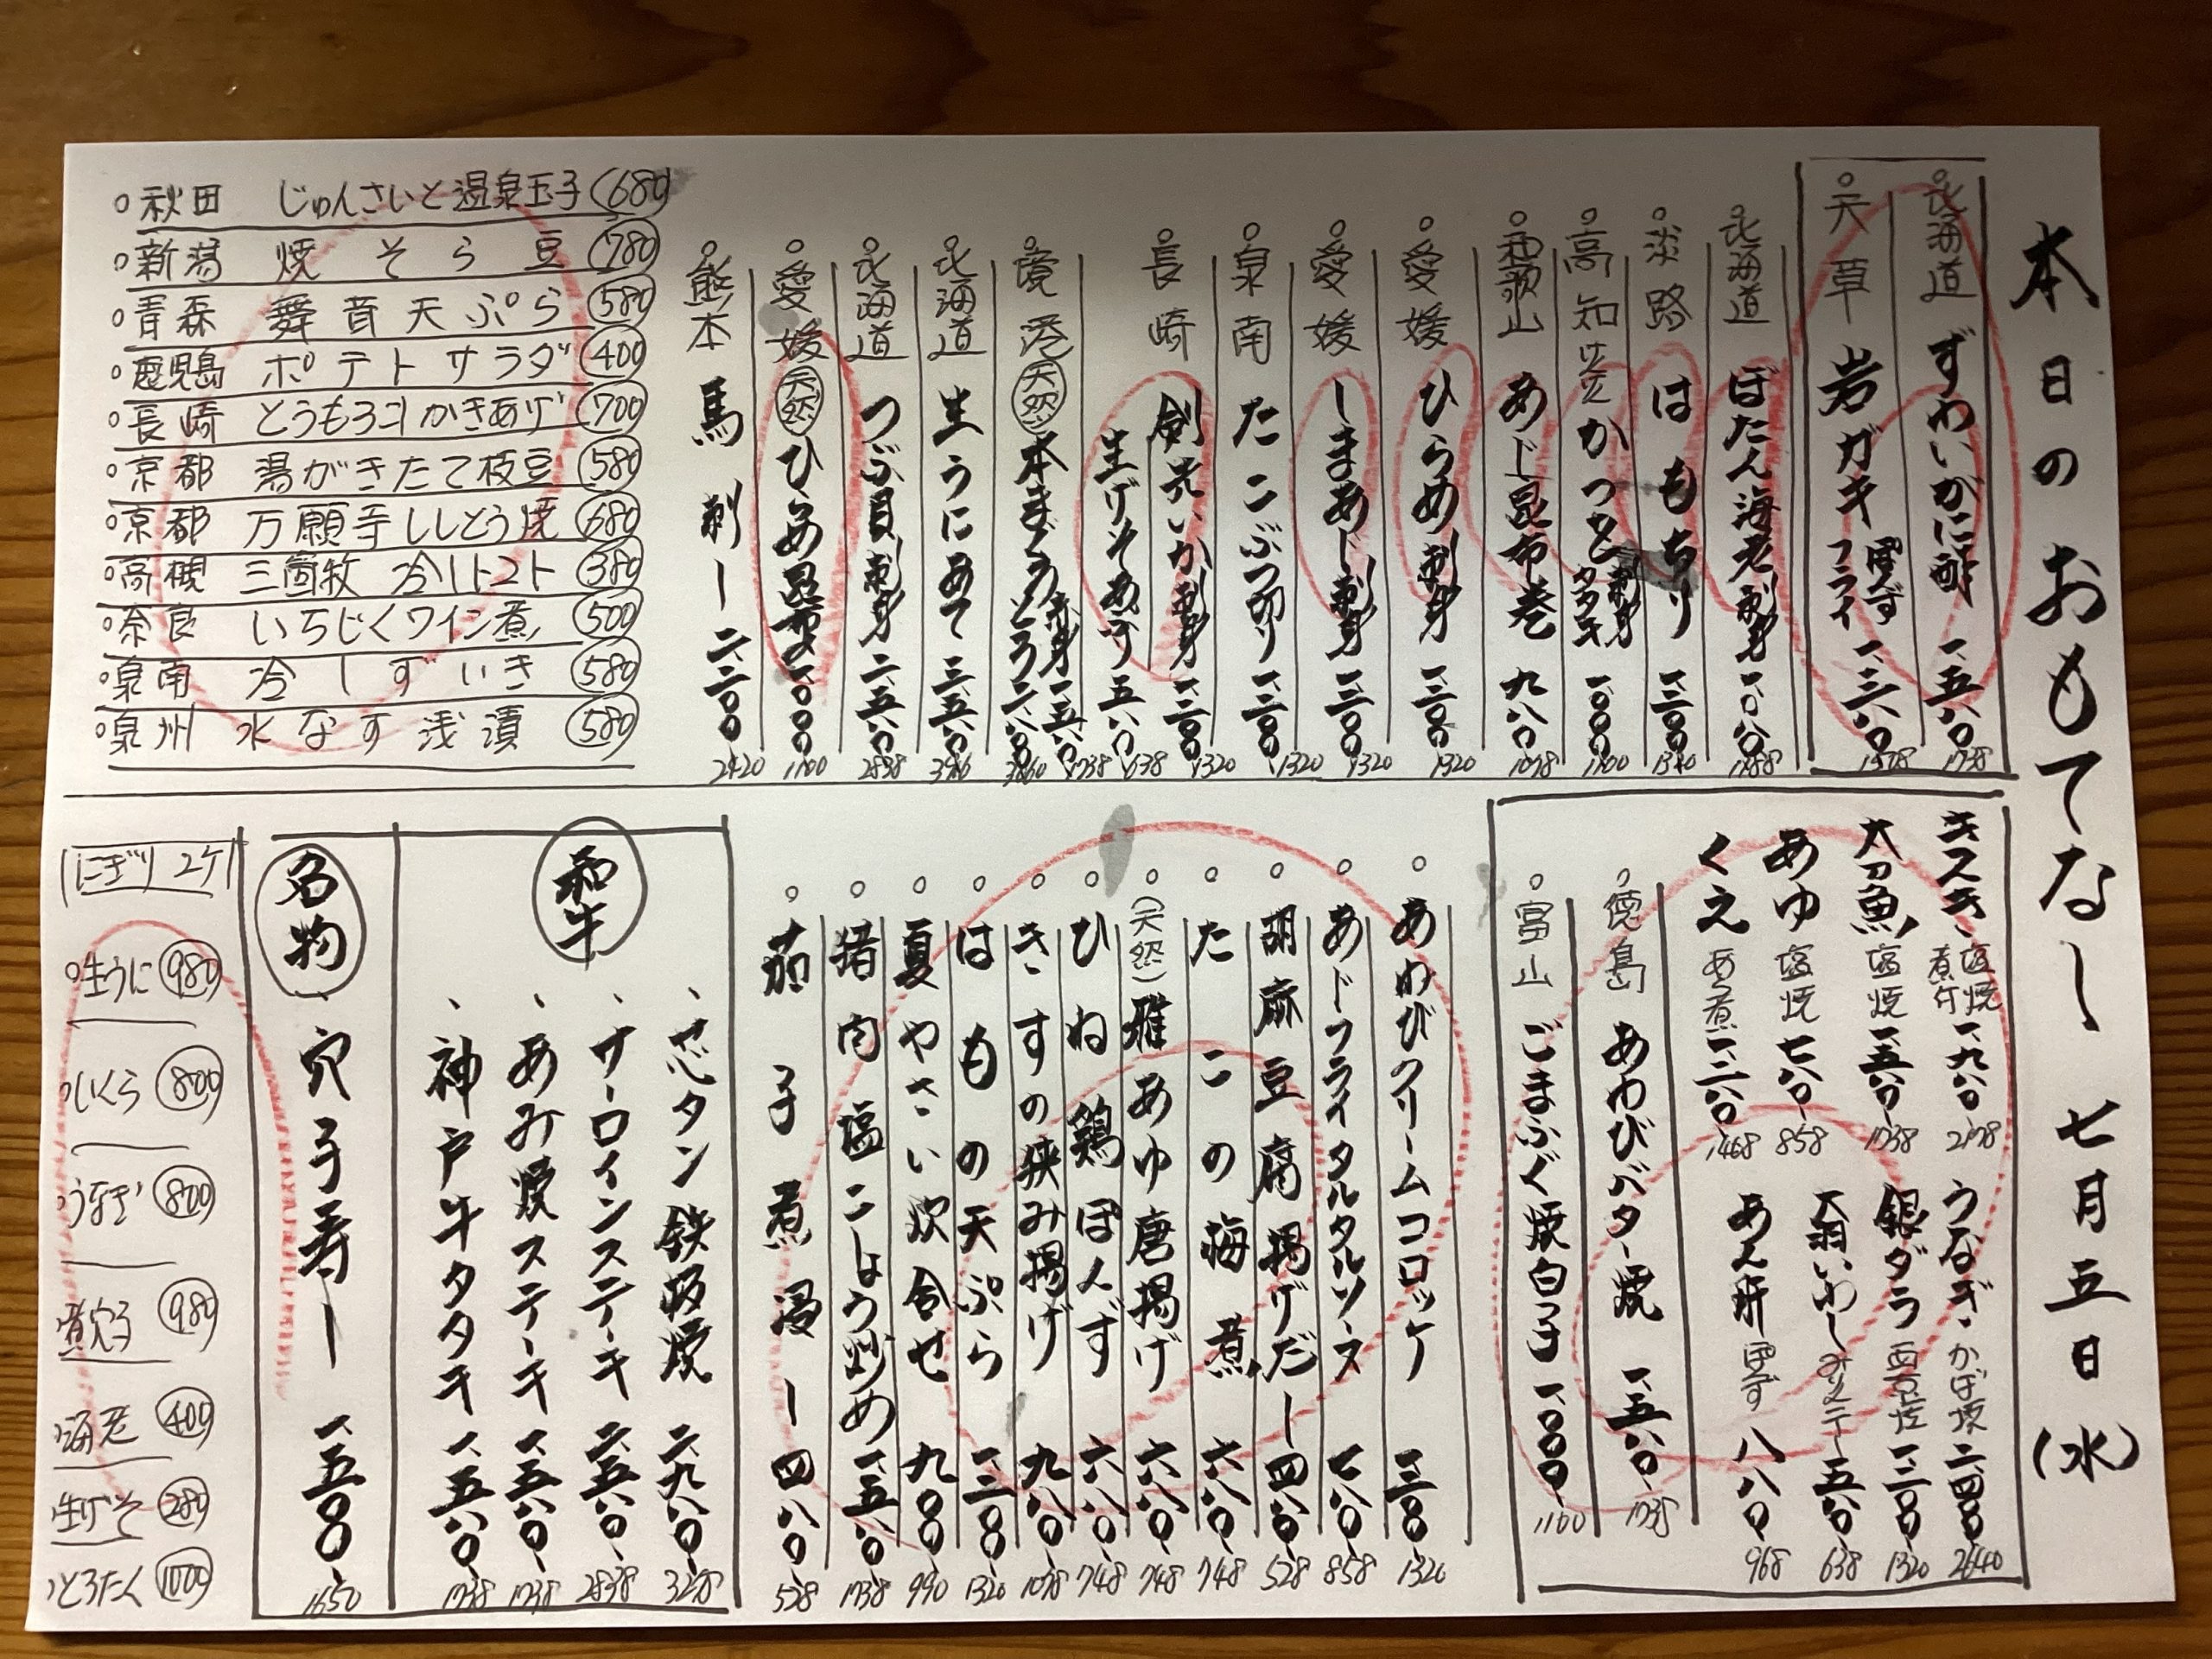 本日のおもてなし 七月五日(水)
北海道 ずわいがに酢 一、五八〇 1738
天草 岩ガキ ぽんず フライ 一、三八〇
北海道 ぼたん海老刺身 一、〇八〇 1188
淡路 はもちり 一、二〇〇
高知 かつを 刺身 タタキ 一、〇〇〇 1100
和歌山 あじ昆布巻 九八〇 1078
愛媛 ひらめ刺身 一、二〇〇 1320
愛媛 しまあじ刺身 一、二〇〇 1320
泉南 たこぶつ切り 一、二〇〇 1320
長崎 剣先いか刺身 一、二〇〇 1320
生げそあぶり 五八〇 638
境港 (天然) 本まぐろ 赤身 一、五八〇 1738
とろ 二、八〇〇
北海道 生うにあて 三、五八〇
北海道 つぶ貝刺身 二、五八〇 2838
愛媛 (天然) ひらめ昆布〆 一、〇〇〇 1100
熊本 馬刺し 二、二〇〇 2420
秋田 じゅんさいと温泉玉子 680
新潟 焼そら豆 780
青森 舞茸天ぷら 580
鹿児島 ポテトサラダ 400
長崎 とうもろこしかきあげ 700
京都 湯がきたて枝豆 580
京都 万願寺ししとう焼 680
高槻 三箇牧 冷しトマト 380
奈良 いちじくワイン煮 500
泉南 冷しずいき 580
泉州 水なす浅漬 580
きスき 塩焼 煮付 一、九八〇 2178
太刀魚 塩焼 一、五八〇 1738
あゆ 塩焼 七八〇 858
くえ あら煮
うなぎ かば焼 二、四〇〇 2640
銀ダラ 西京焼 一、二〇〇 1320
大羽いわし 五八〇 638
あん肝 ぽんず 八八〇 968
徳島 あわびバター焼 一、五八〇 1738
富山 ごまふぐ焼白子 一、〇〇〇 1100
あわびクリームコロッケ 一、二〇〇 1320
あじフライタルタルソース 七八〇 858
胡麻豆腐揚げだし 四八〇 528
たこの梅煮 六八〇 748
(天然)稚あゆ唐揚げ 六八〇 748
ひね鶏ぽんず 六八〇 748
きすの挟み揚げ 九八〇 1078
はもの天ぷら 一、二〇〇 1320
夏やさい炊合せ 九〇〇 990
猪肉塩こしょう炒め 一、五八〇 1738
茄子煮浸し 四八〇 528
和牛
芯タン鉄板焼 二、九八〇 3278
サーロインステーキ 二、五八〇 2838
あみ焼ステーキ 一、五八〇 1738
神戸牛タタキ 一、五八〇 1738
名物
穴子寿し 一、五〇〇 1650
にぎり 2ケ
生うに 980
いくら 800
うなぎ 800
煮穴子 980
海老 400
生げそ 280
とろたく 1000